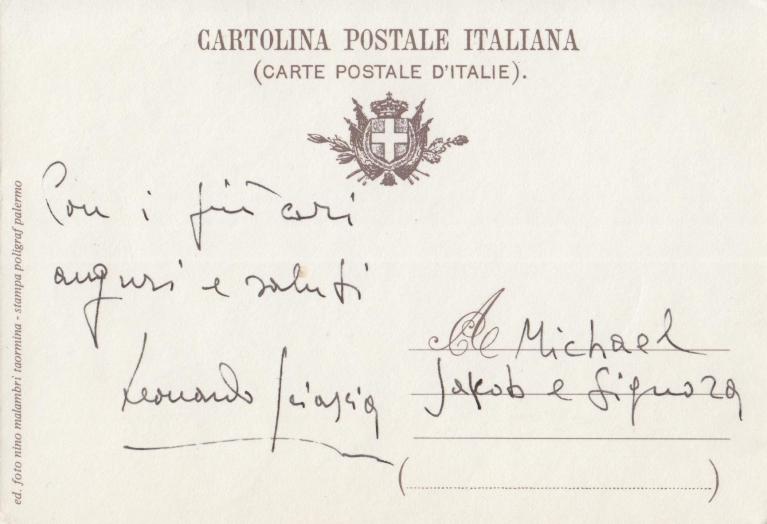 CARTOLINA POSTALE ITALIANA
(CARTE POSTALE D'ITALIE).
Con i più cari
auguri e saluti
Leonardo Sciascia
A Michael
Jakob e Signora
ed. foto nino malambri taormina - stampa poligraf palermo